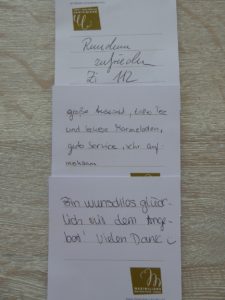 Rundum
zufrieden
Zi 112
große Auswahl, tolle Tee
und leckere Marmeladen,
guter Service, sehr auf-
merksam
Bin wunschlos glück-
lich mit dem Ange-
bot! Vielen Dank